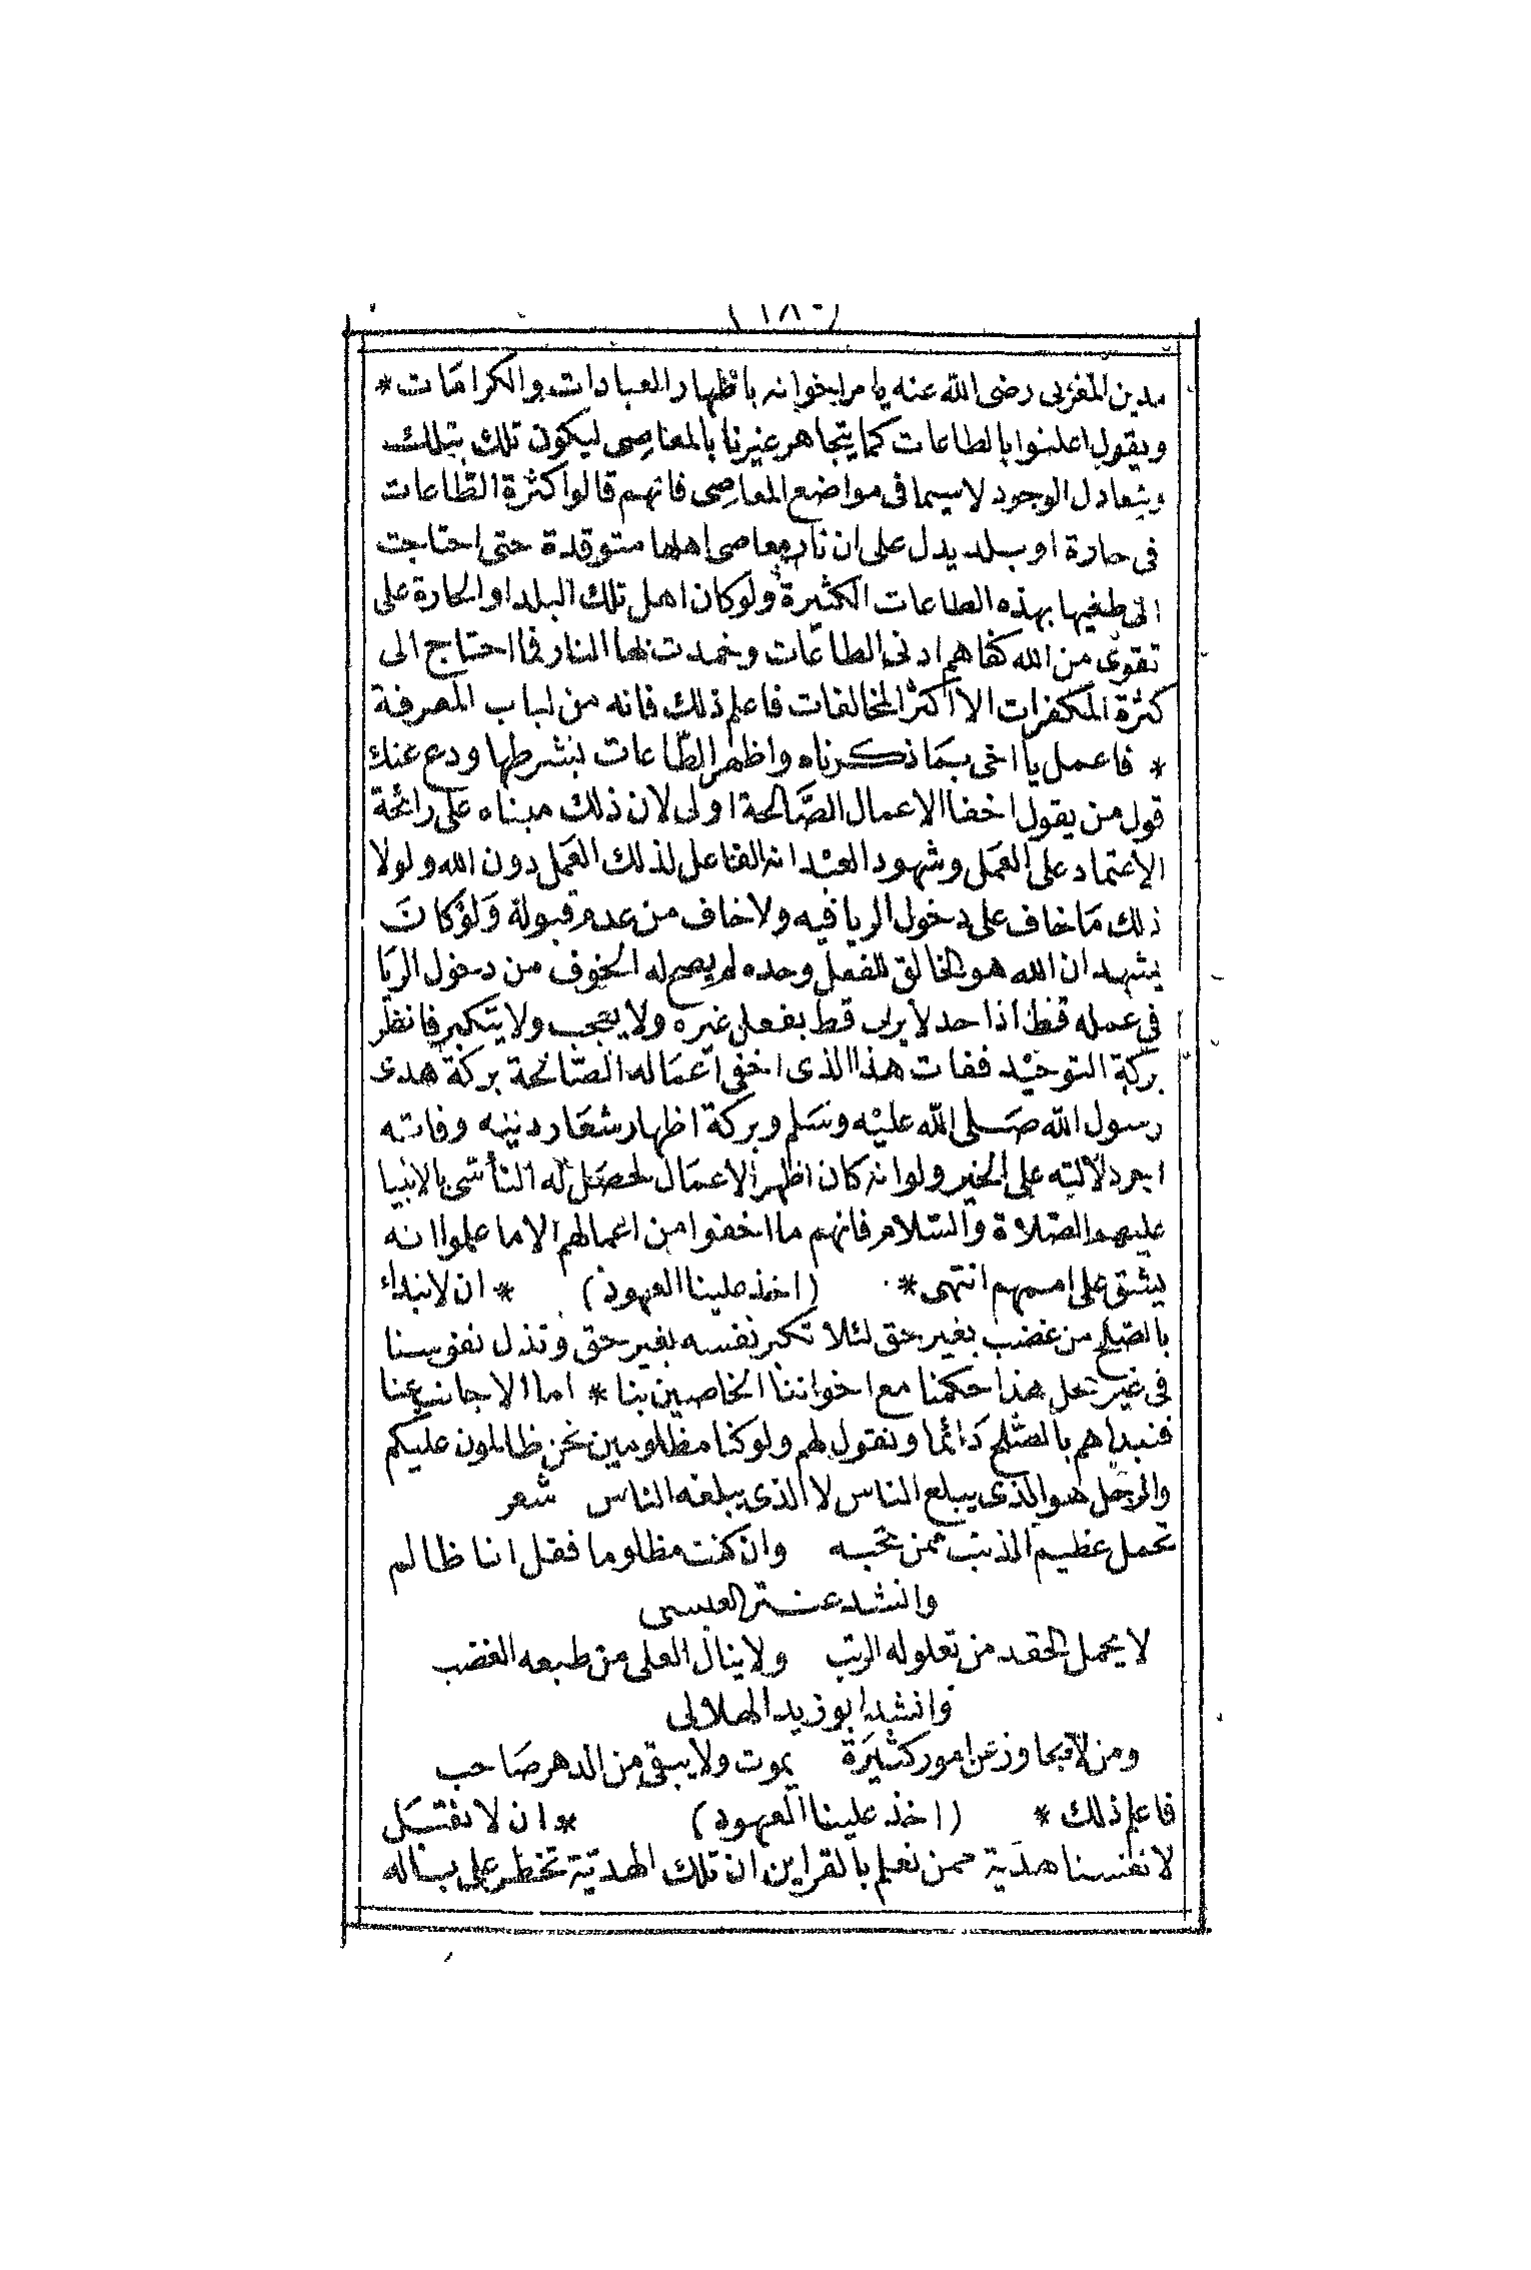 (١٨٠)
مدين المغربى رضى الله عنه يامر اخوانه باظهار العبادات والكرامات *
ويقول اعلنوا بالطاعات كما يتجاهر غيرنا بالمعاصى ليكون تلك بتلك
ويتعادل الوجود لاسيما فى مواضع المعاصى فانهم قالوا كثرة الطاعات
فى حارة او بلد يدل على ان نار معاصى اهلها متوقدة حتى احتاجت
الى طفيها بهذه الطاعات الكثيرة ولو كان اهل تلك البلد او الحارة على
تقوى من الله كفاهم ادنى الطاعات وخمدت لها النار فما احتاج الى
كثرة المكفرات الا اكثر المخالفات فاعلم ذلك فانه من لباب المعرفة
* فاعمل يا اخى بما ذكرناه واظهر الطاعات بشرطها ودع عنك
قول من يقول اخفا الاعمال الصالحة اولى لان ذلك مبناه على رائحة
الاعتماد على العمل وشهود العبد انه الفاعل لذلك العمل دون الله ولولا
ذلك ما خاف على دخول الريا فيه ولا خاف من عدم قبولة ولو كان
يشهد ان الله هو الخالق للفعل وحده لم يصح له الخوف من دخول الريا
فى عمله قط اذ احد لا يرلى قط بفعل غيره ولا يعجب ولا يتكبر فانظر
بركة التوحيد ففات هذا الذى اخفى اعماله الصالحة بركة هدى
رسول الله صلى الله عليه وسلم وبركة اظهار شعار دينه وفاته
اجر دلالته على الخير ولو انه كان اظهر الاعمال لحصل له التأسى بالانبيا
عليهم الصلاة والسلام فانهم ما اخفوا من اعمالهم الا ما علموا انه
يشق على اممهم انتهى * (اخذ علينا العهود) * ان لا نبداء
بالصلح من غضب بغير حق لئلا تكبر نفسه بغير حق وتذل نفوسنا
فى غير محل هذا حكمنا مع اخواننا الخاصين بنا * اما الاجانب عنا
فنبداهم بالصلح دائما ونقول لهم ولو كنا مظلومين نحن ظالمون عليكم
والرجل هو الذى يبلع الناس لا الذى يبلعه الناس شعر
تحمل عظيم الذنب ممن تحبه وان كنت مظلوما فقل انا ظالم
وانشد عنتر العبسى
لا يحمل الحقد من تعلو له الرتب ولا ينال العلى من طبعه الغضب
وانشد ابو زيد الهلالى
ومن لا تجاوز عن امور كثيرة يموت ولا يبقى من الدهر صاحب
فاعلم ذلك * (اخذ علينا العهود) * وان لا نقتبل
لانفسنا هدية ممن نعلم بالقراين ان تلك الهدية تخطر على باله